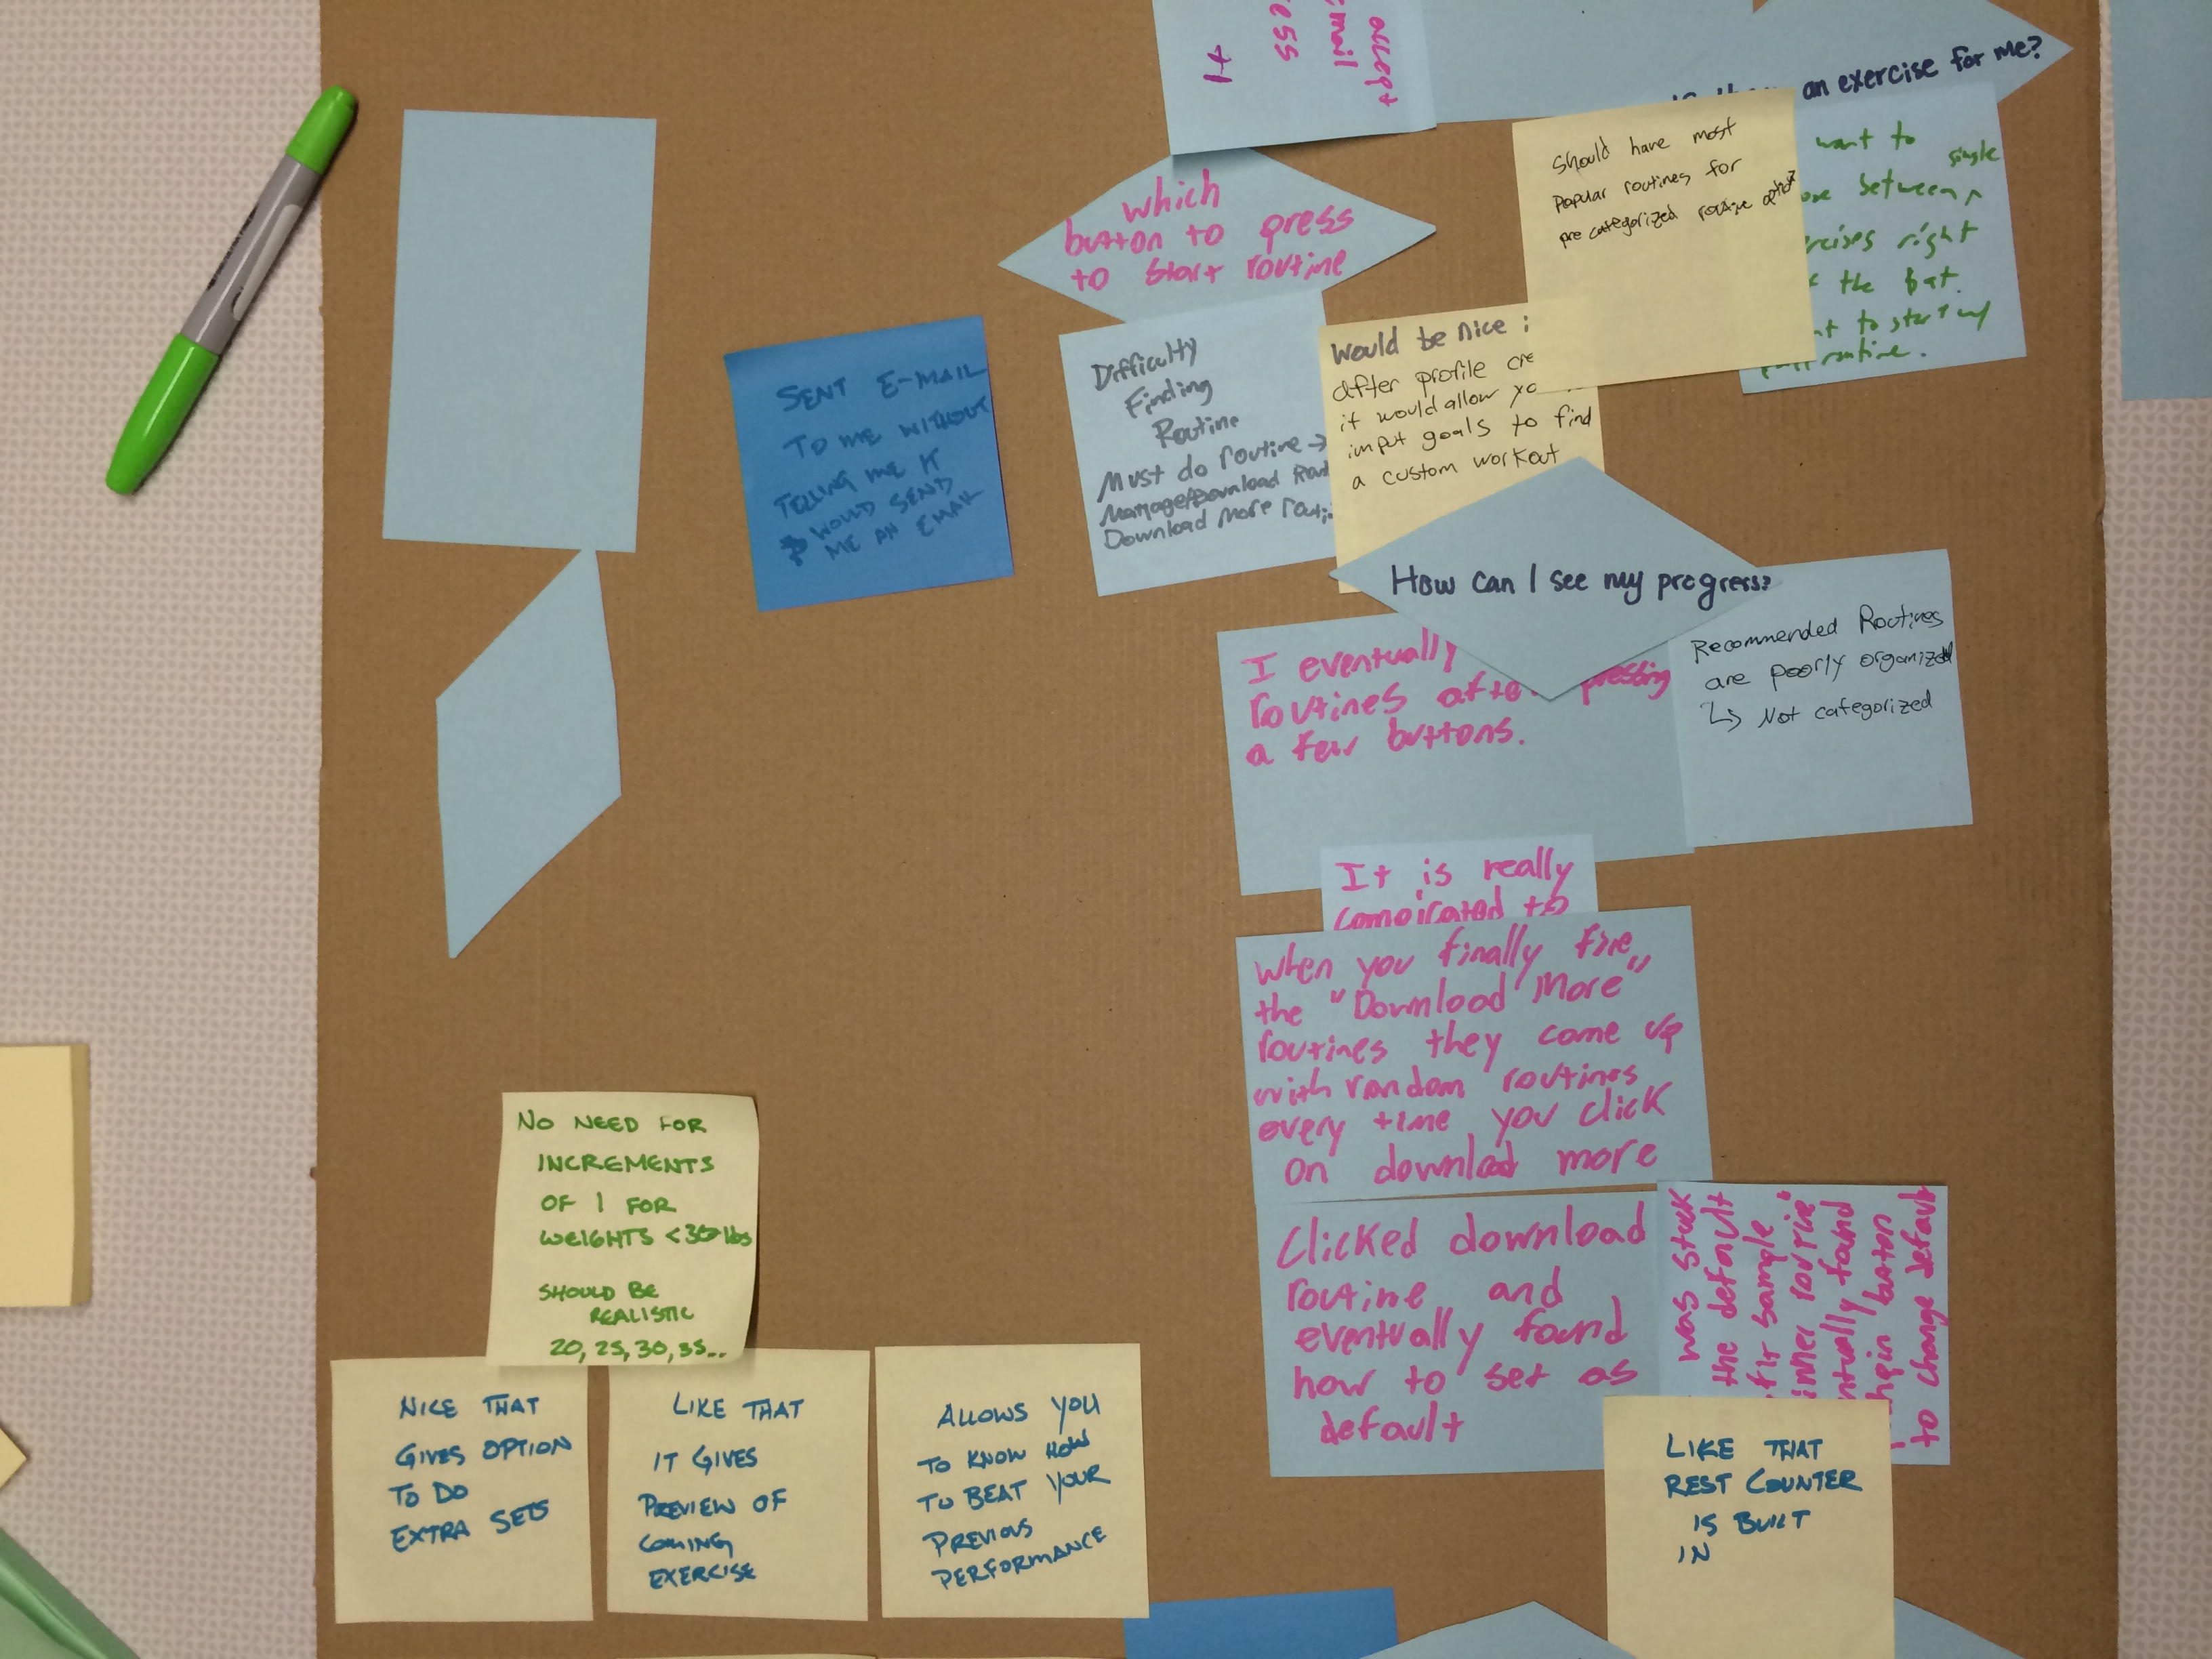 It
ess
mail
accept
an exercise for me?
which
button to press
to start routine
Should have most
Popular routines for
pre categorized routine
want to
single
between
right
the bat.
to start w/
routine.
SENT E-MAIL
TO ME WITHOUT
TELLING ME IT
WOULD SEND
ME AN EMAIL
Difficulty
Finding
Routine
Must do routine →
Manage/Download
Download more
Would be nice
after profile
it would allow
input goals to find
a custom workout
How can I see my progress?
I eventually
routines after pressing
a few buttons.
Recommended Routines
are poorly organized
↳ Not categorized
It is really
compicated to
when you finally fine
the "Download More"
routines they come up
with random routines
every time you click
on download more
Clicked download
routine and
eventually found
how to set as
default
was stuck
the default
sample
routine"
found
button
to change default
NO NEED FOR
INCREMENTS
OF 1 FOR
WEIGHTS < lbs
SHOULD BE
REALISTIC
20, 25, 30, 35...
NICE THAT
GIVES OPTION
TO DO
EXTRA SETS
LIKE THAT
IT GIVES
PREVIEW OF
COMING
EXERCISE
ALLOWS YOU
TO KNOW HOW
TO BEAT YOUR
PREVIOUS
PERFORMANCE
LIKE THAT
REST COUNTER
IS BUILT
IN